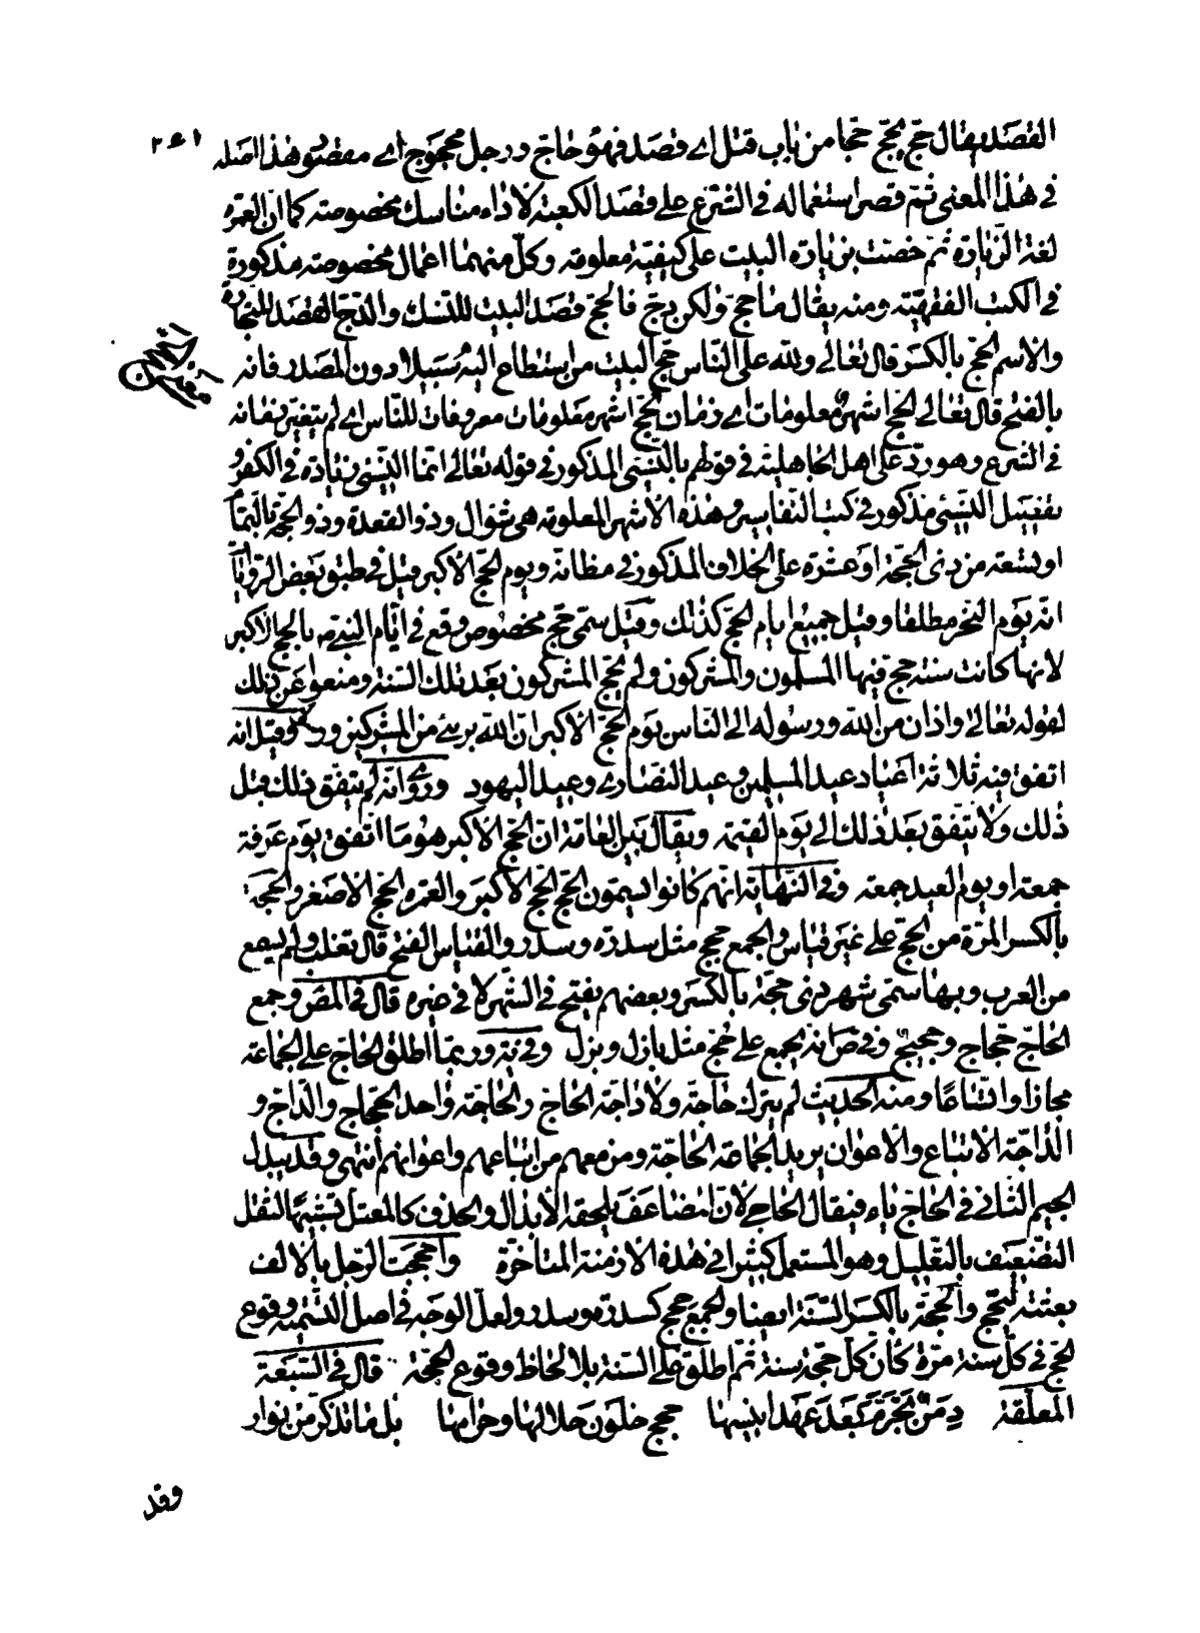 القصد يقال حجّ يحجّ حجّا من باب قتل اي قصد فهو حاجّ ورجل محجوج اي مقصود هذا اصله
في هذا المعنى ثمّ قصر استعماله في الشرع على قصد الكعبة لاداء مناسك مخصوصة كما ان العمرة
لغة الزيارة ثمّ خصّت بزيارة البيت على كيفيّة معلومة وكلّ منهما اعمال مخصوصة مذكورة
في الكتب الفقهيّة ومنه يقال ما حجّ ولكن دجّ فالحجّ قصد البيت للنسك والدجّ القصد للتجارة
والاسم الحجّ بالكسر قال تعالى ولله على النّاس حجّ البيت من استطاع اليه سبيلا دون المصدر فانه
بالفتح قال تعالى الحجّ اشهر معلومات اي زمان الحجّ اشهر معلومات معروفات للنّاس اي لم يتغيّر زمانه
في الشرع وهو ردّ على اهل الجاهلية في قولهم بالنّسئ المذكور في قوله تعالى انّما النّسئ زيادة في الكفر و
تفصيل النسئ مذكور في كتب التفاسير وهذه الاشهر المعلومة هي شوال وذو القعدة وذو الحجّة بالتّمام
او تسعة من ذي الحجّة او عشرة على الخلاف المذكور في مظانّه ويوم الحجّ الاكبر قيل في طبق بعض الروايات
انّه يوم النّحر مطلقا وقيل جميع ايام الحجّ كذلك وقيل سمّى حجّ مخصوص وقع في ايّام النبيّ ص بالحج الاكبر
لانها كانت سنة حج فيها المسلمون والمشركون ولم يحجّ المشركون بعد تلك السّنة ومنعوا عن ذلك
لقوله تعالى واذان من الله ورسوله الى النّاس يوم الحجّ الاكبر انّ الله برئ من المشركين وقيل انه
اتفق فيه ثلاثة اعياد عيد المسلمين وعيد النصارى وعيد اليهود وروى انّه لم يتّفق ذلك قبل
ذلك ولا يتّفق بعد ذلك الى يوم القيمة ويقال بين العامّة انّ الحجّ الاكبر هو ما اتّفق يوم عرفة
جمعة او يوم العيد جمعة وفي النّهاية انّهم كانوا يسمّون الحجّ الحجّ الاكبر والعمرة الحجّ الاصغر والحجّة
بالكسر المرّة من الحجّ على غير قياس والجمع حجج مثل سدرة وسدر والقياس الفتح قال ثعلب ولم يسمع
من العرب وبها سمّى شهر ذي حجّة بالكسر وبعضهم يفتح في الشّهر لا في غيره قال في المص وجمع
الحاجّ حجّاج وحجيج وفي ص انه يجمع على حجّ مثل بازل وبزل وفي ية وربّما اطلق الحاجّ على الجماعة
مجازا واتّساعا ومنه الحديث لم يترك حاجّة ولا داجّة الحاجّ والحاجّة واحد الحجّاج والدّاجّ و
الدّاجّة الاتباع والاعوان يريد الجماعة الحاجّة ومن معهم من اتباعهم واعوانهم انتهى وقد يبدل
الجيم الثاني في الحاجّ ياء فيقال الحاجي لانّ المضاعف يلحقه الابدال والحذف كالمعتل تشبيها لثقل
التّضعيف بالتعليل وهو المستعمل كثيرا في هذه الازمنة المتاخّرة واحججت الرجل بالالف
بعثته ليحجّ والحجّة بالكسر السّنة ايضا والجمع حجج كسدرة وسدر ولعلّ الوجه في اصل التّسمية وقوع
الحجّ في كلّ سنة مرّة كأن كلّ حجّة سنة ثمّ اطلق على السنة بلا لحاظ وقوع الحجّة قال في السّبعة
المعلّقة دمن تجرّم بعد عهد انيسها حجج خلون حلالها وحرامها بل ما تذكر من نوار
وقد